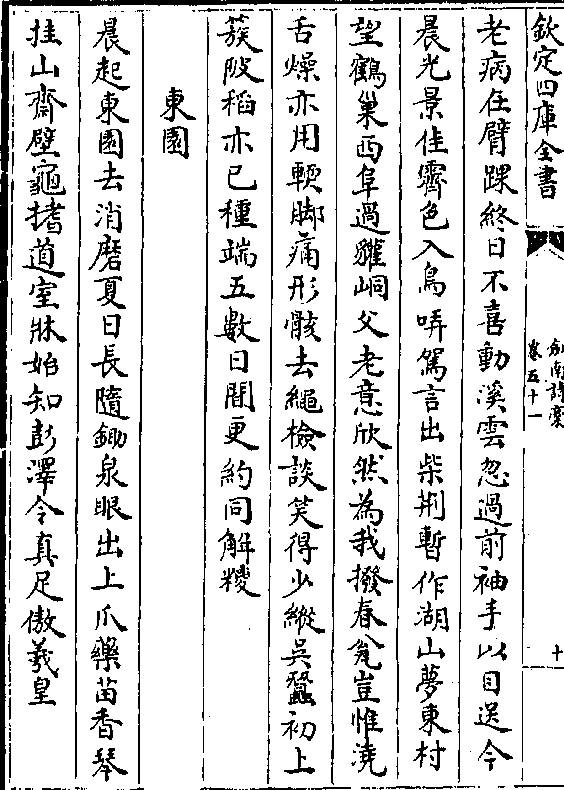 欽定四庫全書
劍南詩稾
卷五十一
十
老病任臂踝終日不喜動溪雲忽過前袖手以目送今
晨光景佳霽色入鳥哢駕言出柴荆暫作湖山夢東村
望鶴巢西阜過貛峒父老意欣然為我撥春瓮豈惟澆
舌燥亦用輭脚痛形骸去繩檢談笑得少縱吳蠶初上
簇陂稻亦已種端五數日間更約同解糭
東園
晨起東園去消磨夏日長隨鋤泉眼出上爪藥苗香琴
挂山齋壁龜搘道室牀始知彭澤令真足傲羲皇